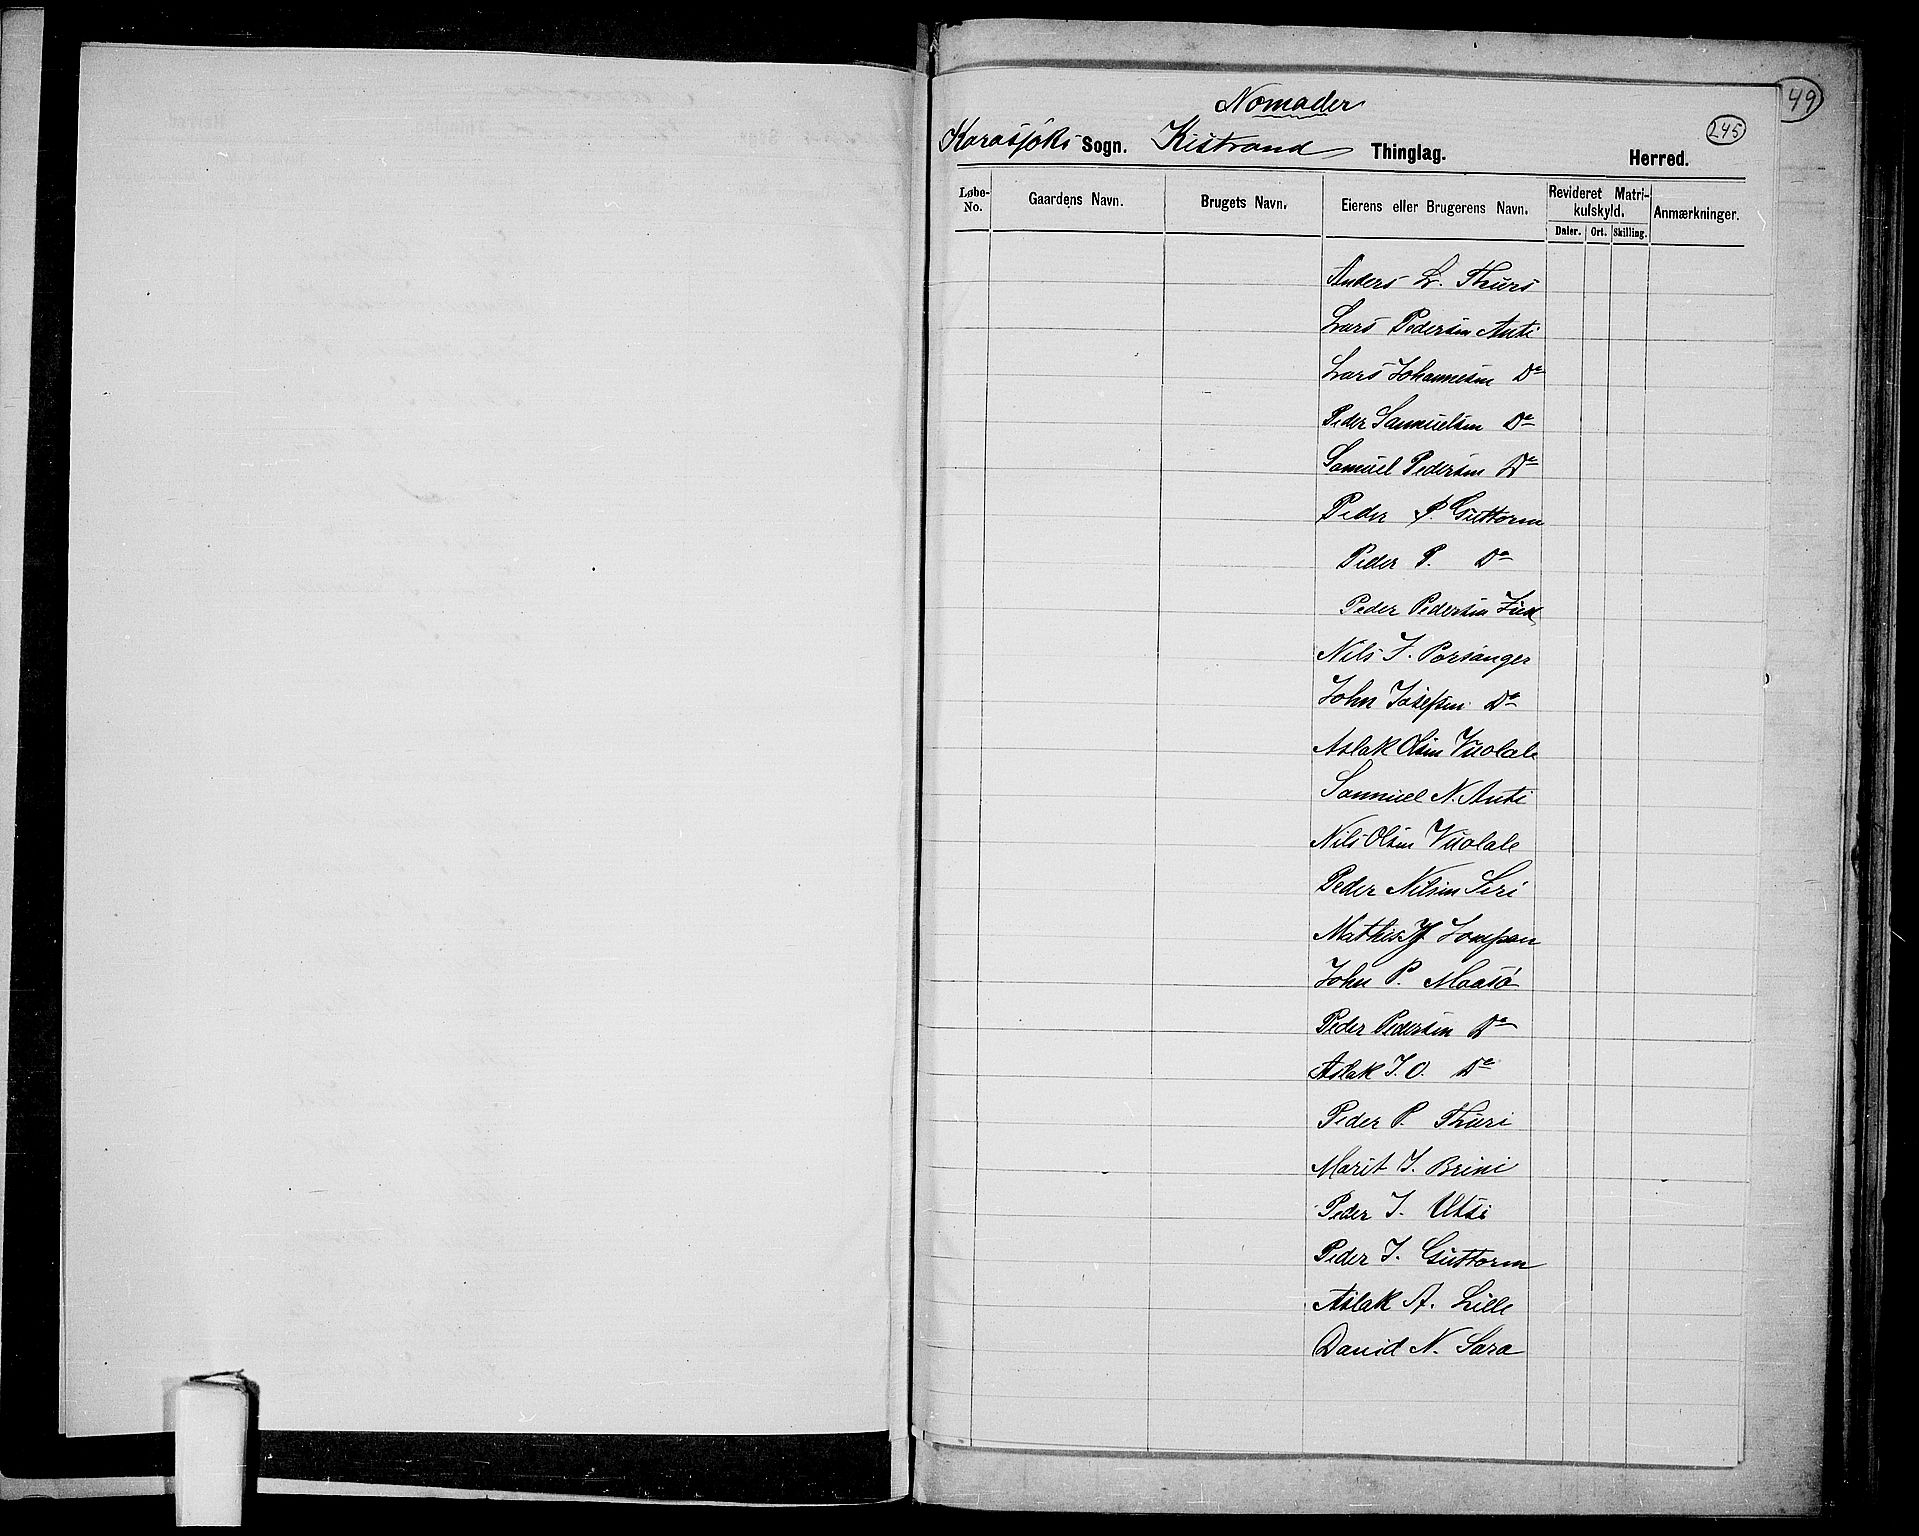 Nomader
49
245
Karasjoks Sogn. Kistrand Thinglag. Herred.
Løbe-No. Gaardens Navn. Brugets Navn. Eierens eller Brugerens Navn. Revideret Matrikulskyld. Anmærkninger.
Daler. Ort. Skilling.
Anders L. Thuri
Lars Pedersen Anti
Lars Johannesen Do
Peder Sammuelsen Do
Samuel Pedersen Do
Peder P. Guttorm
Peder P. Do
Peder Pedersen
Nils J. Porsanger
John Josefsen Do
Aslak Olsen Vuolale
Sammuel N. Anti
Nils Olsen Vuolale
Peder Nilsen Siri
Mathis Jompan
John P. Maasø
Peder Pedersen Do
Aslak J. O. Do
Peder P. Thuri
Marit J. Brini
Peder J. Utsi
Peder J. Guttorm
Aslak A. Lille
David N. Sara